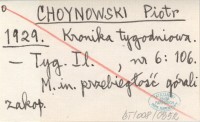 CHOYNOWSKI Piotr
1929. Kronika tygodniowa.
– Tyg. Il., nr 6: 106.
M.in. przebiegłość górali
zakop.